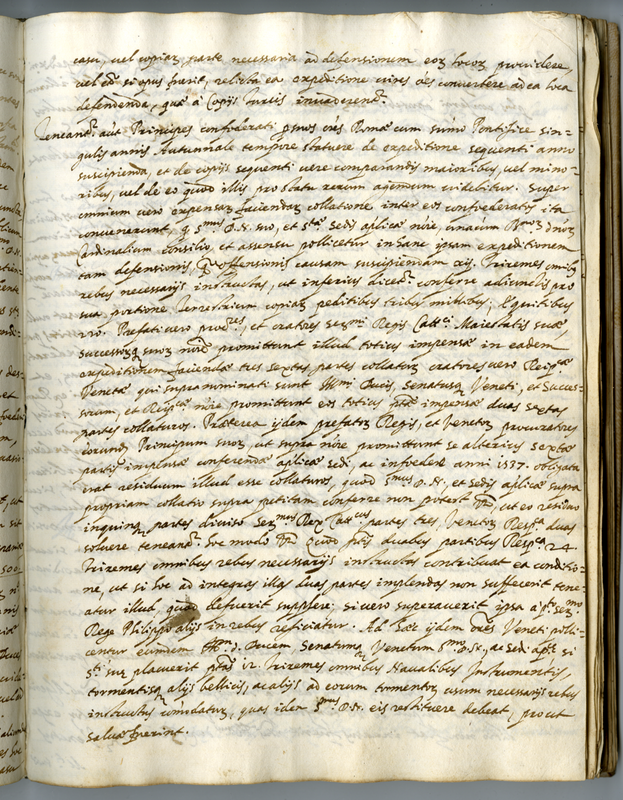 casu, vel copiar parte necessaria ad defensionem eor locor providere,
vel et si opus fuerit, relicta ea expeditione vires oes convertere ad ea loca
defendenda, quæ à Copijs turcis invaderent.
Teneant aut Principes confœderati Romæ cum sumo Pontifice sin=
gulis annis Autumnale tempore statuere de expeditione sequenti anno
suscipienda, et de copijs sequenti vere comparandis maioribus, vel mino=
ribus, vel de eo quod illis pro statu rerum agendum videbitur. Super
omnium vero expensar faciendar collatione inter eos confœderatos ita
convenerunt, q Smus D.N. suo, et stæ sedis aplicæ nõie, unacum Rmor dnor
Cardinalium consilio, et assensu pollicetur in hanc ipsam expeditionem
tam defensionis, offensionis causam suscipiendam xij. Triremes omnibus
rebus necessarijs instructas, ut inferius dicet, conferre ad
sua portione terrestrium copiar peditibus tribus milibus, Equitibus
Prefati vero pro res, et oratores sermi Regis Cattci Maiestatis suæ
successor suor nõie promittunt illud totius impensæ in eadem
expeditionem faciendæ tres sextas partes collatur oratores vero Reipcæ
Venetæ, qui supra nominati sunt Illmi Ducis, Senatus Veneti, et Succes=
sorum, et Reipcæ nõie promittunt eos totius impensæ duas sextas
partes collaturos. Præterea ijdem prefator Regis, et Venetor procuratores
eorund Principum suor, ut supra nõie promittunt se alterius sextæ
partis impensæ conferendæ aplicæ sedi, ac in fœdere anni 1537. obligata
erat residuum illud esse collaturos, quod Smus D.N. et sedis aplicæ supra
propriam collatio supra petitam conferre non potest ut eo residuo
in quinq partes diviso Sermus Rex Cattcus partes tres, Venetor Respca duas
solvere teneant. hoc modo quod pro duabus partibus Respca 24.
triremes omnibus rebus necessarijs instructas contribuat ea conditio=
ne, ut si hoc ad integras illas duas partes implendas non suffecerit tene=
atur illud, quod defuerit supplere; si vero superaverit ipsa à Sermo
Rege Philippo alijs in rebus reficiatur. Ad hoc ijdem Veneti polli=
centur eumdem d. Ducem Senatum Venetum Smo D.N., ac sedi aplcæ si
sti suæ placuerit ptas 12. triremes omnibus Navalibus Instrumentis,
tormentisq alijs bellicis, ac alijs ad eorum tormentor usum necessarijs rebus
instructas comodatur, quas idem Smus D.N. eis restituere debeat, prout
salvæ fuerint.